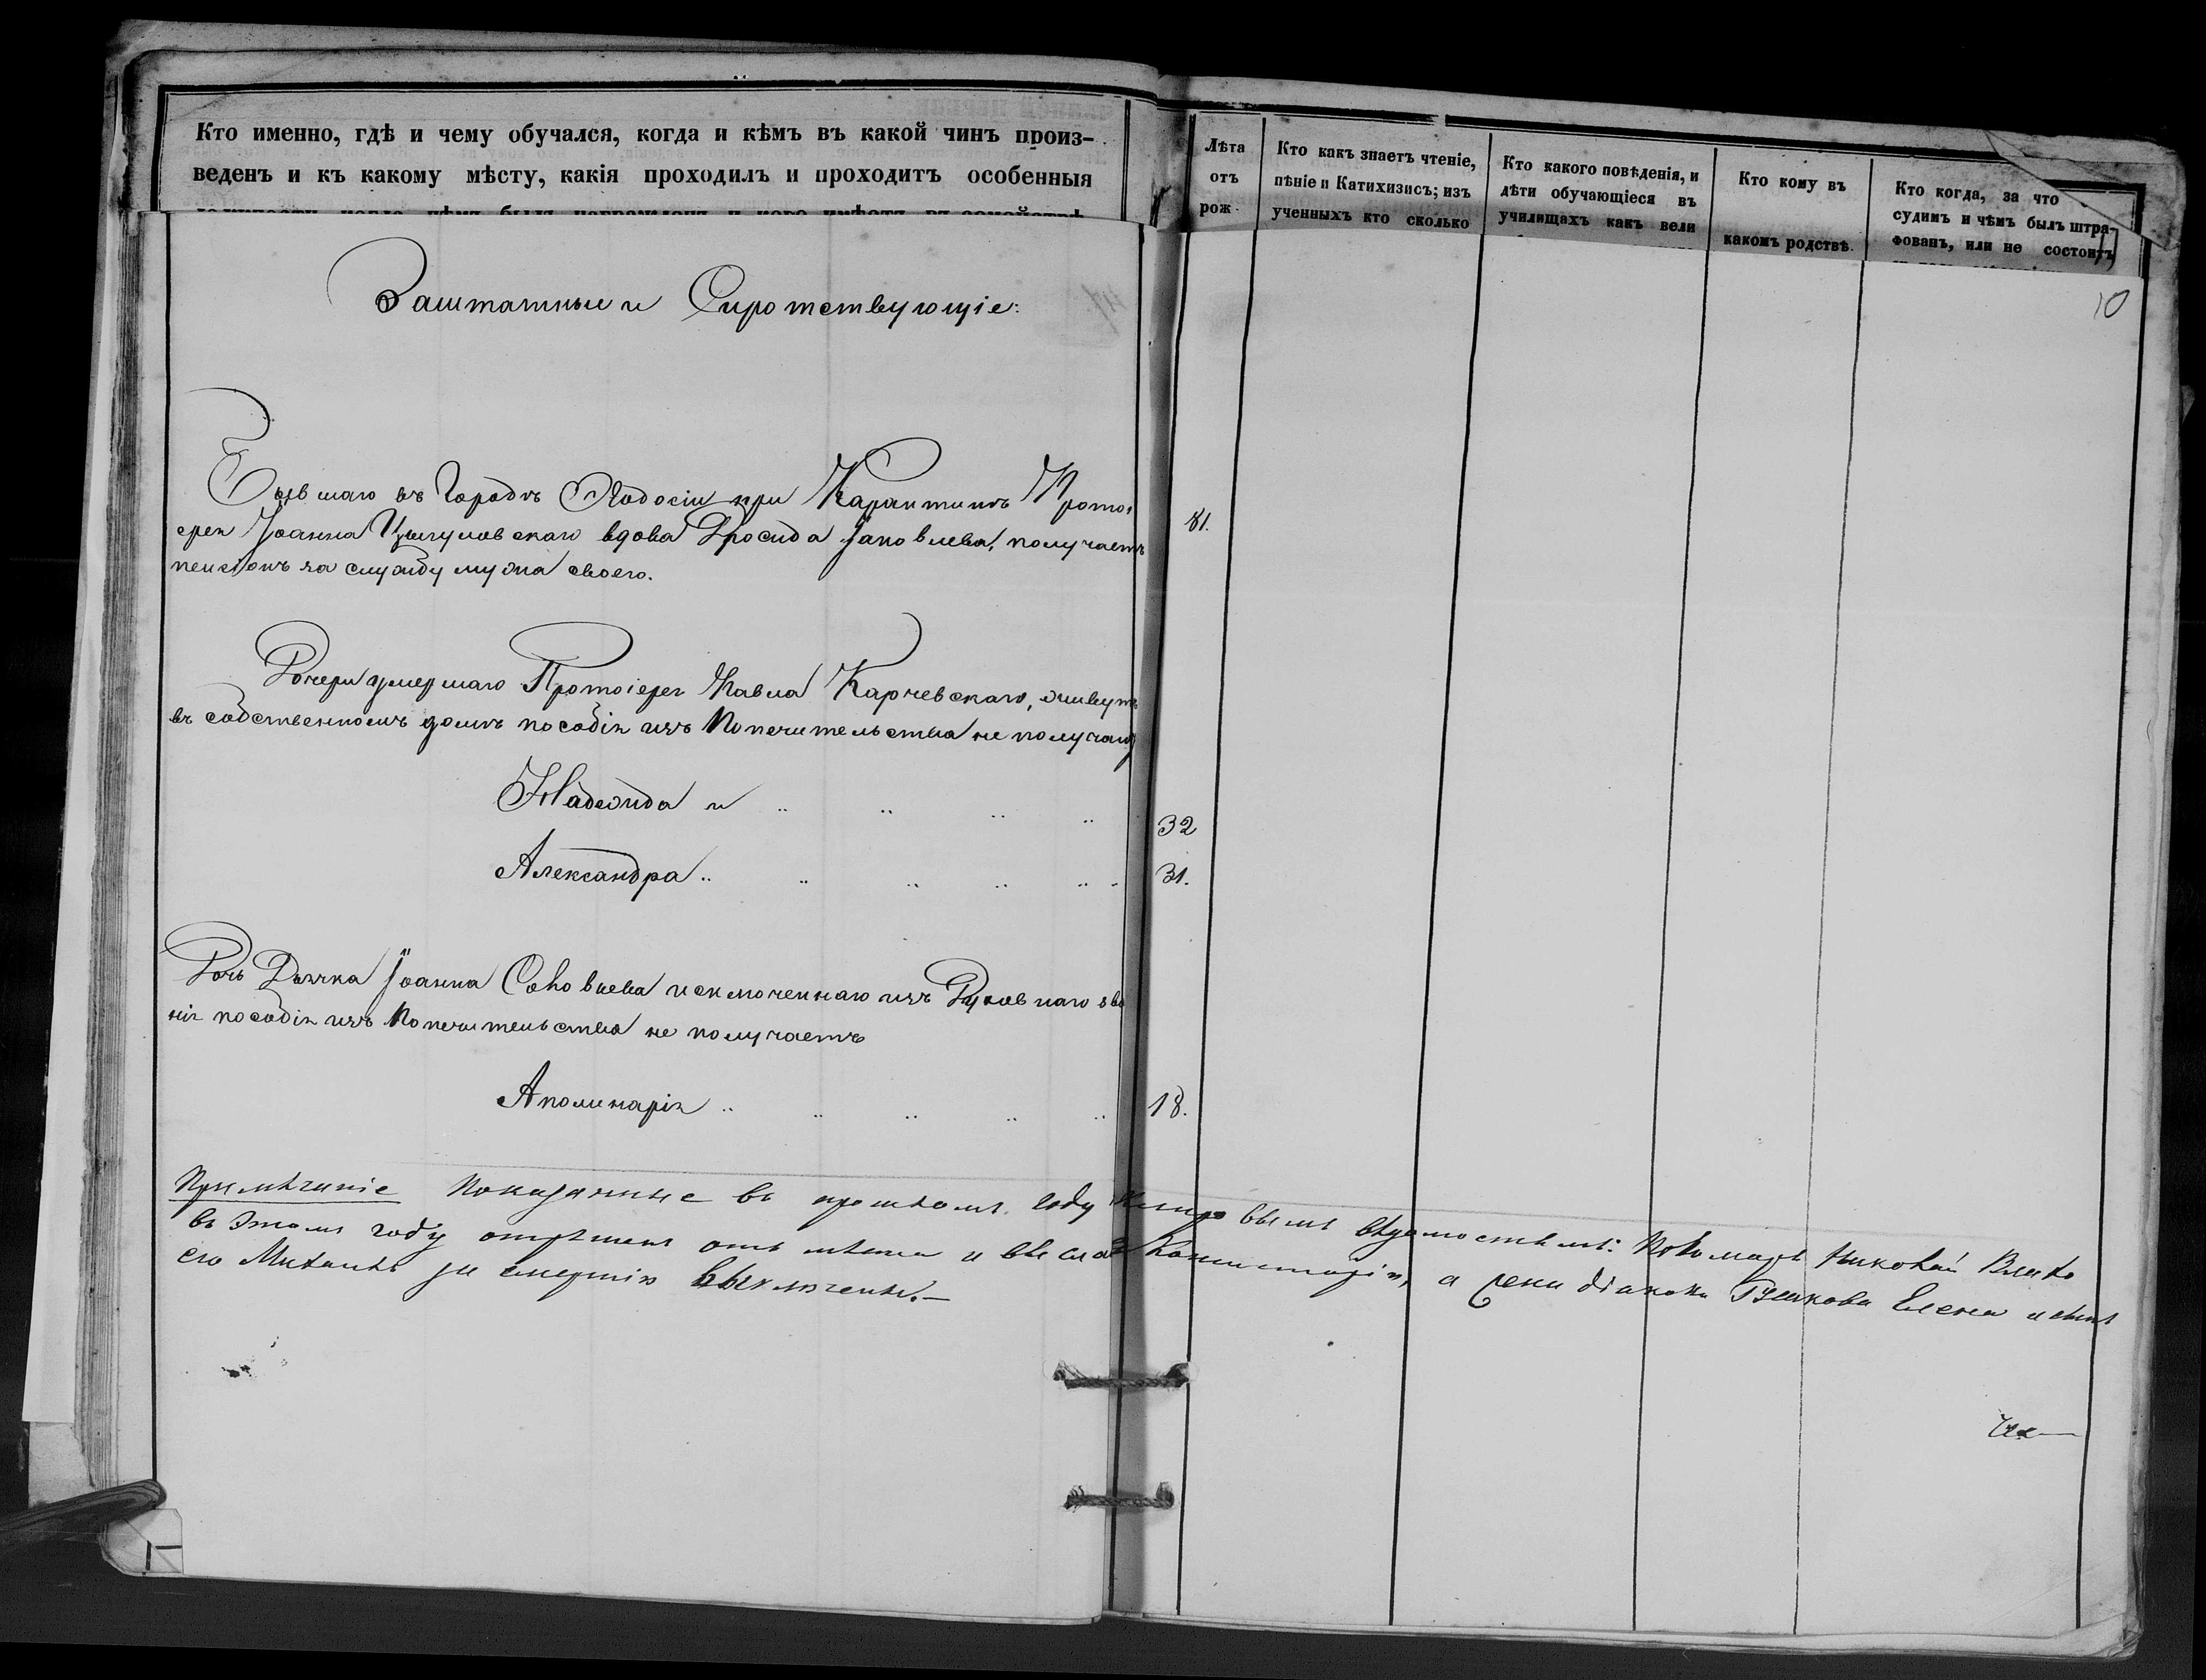 Кто именно, гдѣ и чему обучался, когда и кѣмъ въ какой чинъ произ-
веденъ и къ какому мѣсту, какія проходилъ и проходитъ особенныя
должности, когда, чѣмъ былъ награжденъ и кого имѣетъ въ семействѣ
Лѣта
отъ
рож
Кто какъ знаетъ чтеніе,
пѣніе и Катихизисъ; изъ
ученныхъ кто сколько
Кто какого поведенія, и
дѣти обучающіеся въ
училищахъ какъ вели
Кто кому въ
какомъ родствѣ
Кто когда, за что
судимъ и чѣмъ былъ штра-
фованъ, или не состоитъ
10
Заштатные и Сиротствующіе:
Бывшаго въ Городѣ Ѳеодосіи при Карантинѣ Прото
ерея Іоанна вдова Дросида Іаковлева, получаетъ 81.
пенсіонъ за службу мужа своего.
Дочери умершаго Протоіерея Павла Карчевскаго, живутъ
въ собственномъ домѣ пособія изъ Попечительства не получаю
Надежда и 32
Александра 31.
Дочь Дьячка Іоанна Соловьева исключеннаго изъ Духовнаго зва
нія пособія изъ Попечительства не получаетъ
Аполинарія 18.
Примѣчаніе Показанные въ прошломъ году Клировымъ вѣдомостямъ: Пономарь Николай
въ этомъ году отрѣшенъ отъ мѣста и Консисторіи, а жена діакона Елена и сынъ
его Михаилъ за смертію выключены.—